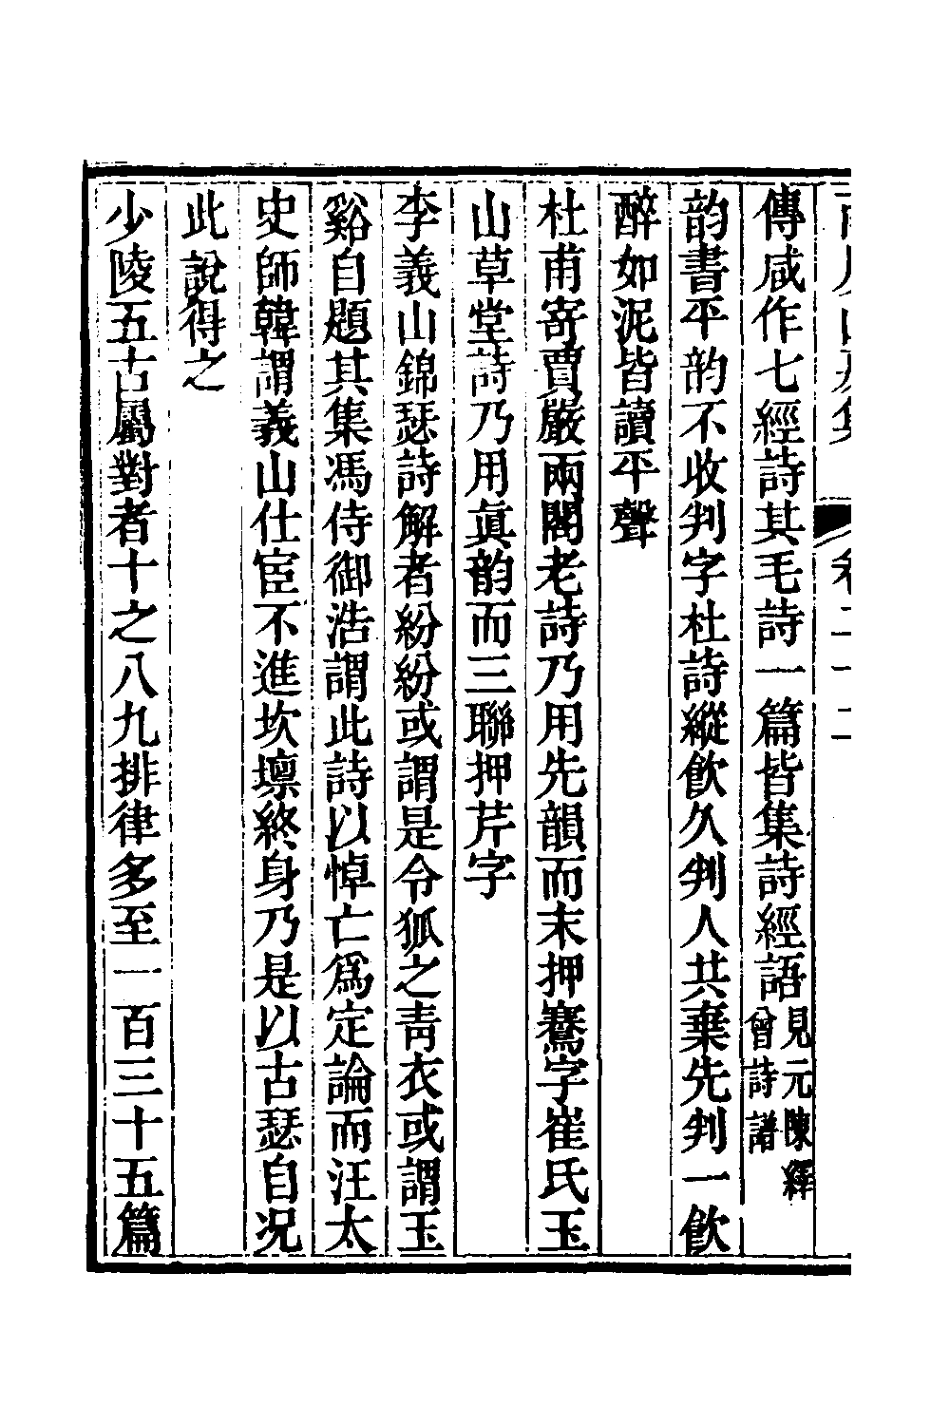 傳咸作七經詩其毛詩一篇皆集詩經語見元陳繹曾詩譜
韵書平韵不收判字杜詩縱飲久判人共棄先判一飲
醉如泥皆讀平聲
杜甫寄賈嚴兩閣老詩乃用先韻而末押騫字崔氏玉
山草堂詩乃用眞韵而三聯押芹字
李義山錦瑟詩解者紛紛或謂是令狐之靑衣或謂玉
谿自題其集馮侍御浩謂此詩以悼亡爲定論而汪太
史師韓謂義山仕宦不進坎壈終身乃是以古瑟自况
此說得之
少陵五古屬對者十之八九排律多至一百三十五篇